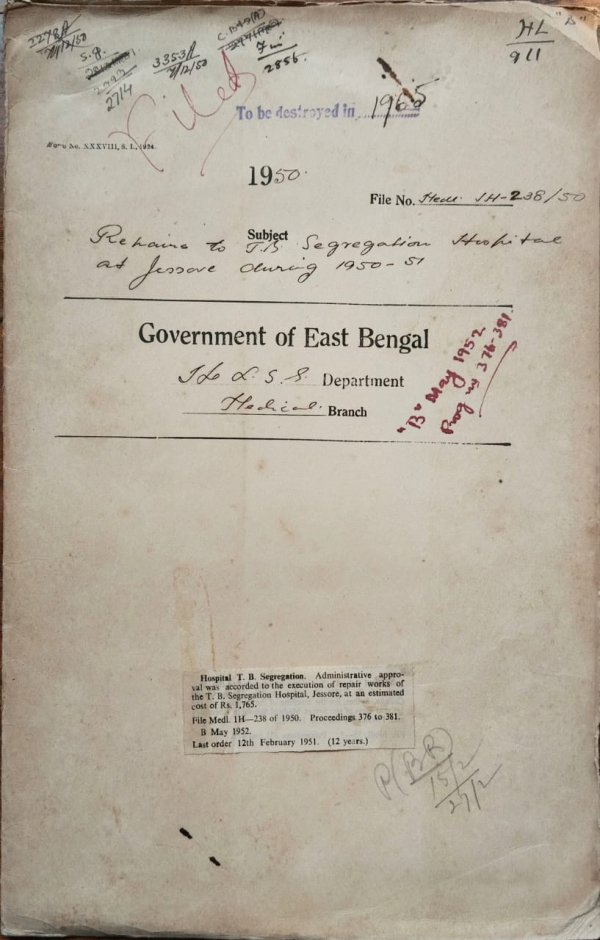 3278A
S.P.
2714
3353A
8/12/50
2856.
HL
911
"B"
Filed
To be destroyed in 1965
Form No. XXXVIII, S. I., 1924.
1950.
File No. Medl. 1H-238/50
Subject
Repairs to T.B Segregation Hospital
at Jessore during 1950-51
Government of East Bengal
H & L. S. G. Department
Medical Branch
"B" May 1952
Prog ngs 376-381.
Hospital T. B. Segregation. Administrative appro-
val was accorded to the execution of repair works of
the T. B. Segregation Hospital, Jessore, at an estimated
cost of Rs. 1,765.
File Medl. 1H—238 of 1950. Proceedings 376 to 381.
B May 1952.
Last order 12th February 1951. (12 years.)
P(BR)
15/2
27/2